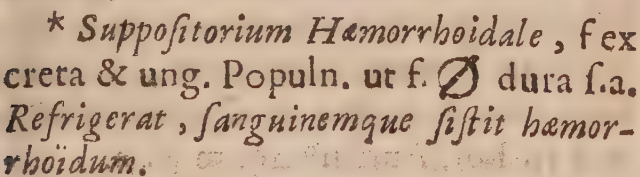 * Suppoſitorium Hæmorrhoidale, f ex
creta & ung. Populn. ut f. dura ſ.a.
Refrigerat, ſanguinemque ſiſtit hæmor-
rhoïdum.